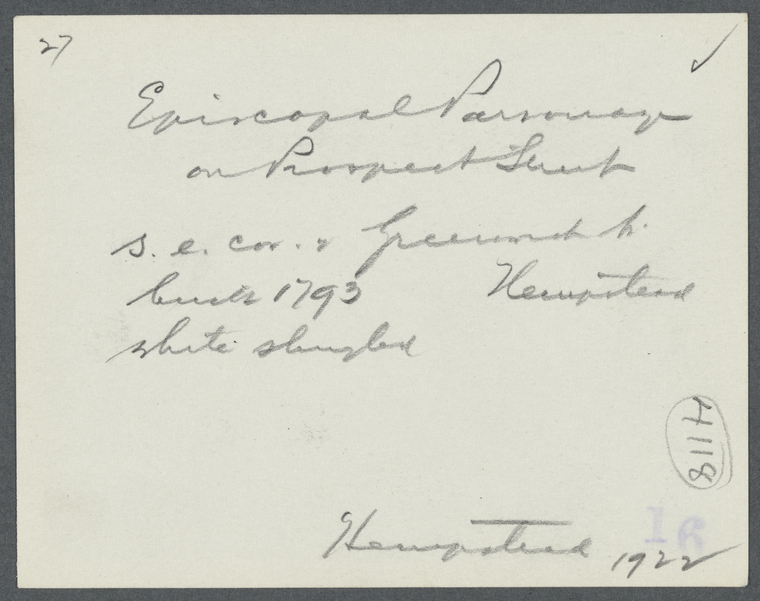 27 ✓
Episcopal Parsonage
on Prospect Street
s. e. cor. & Greenwich St.
built 1793 Hempstead
white shingled
H118
16
Hempstead 1922